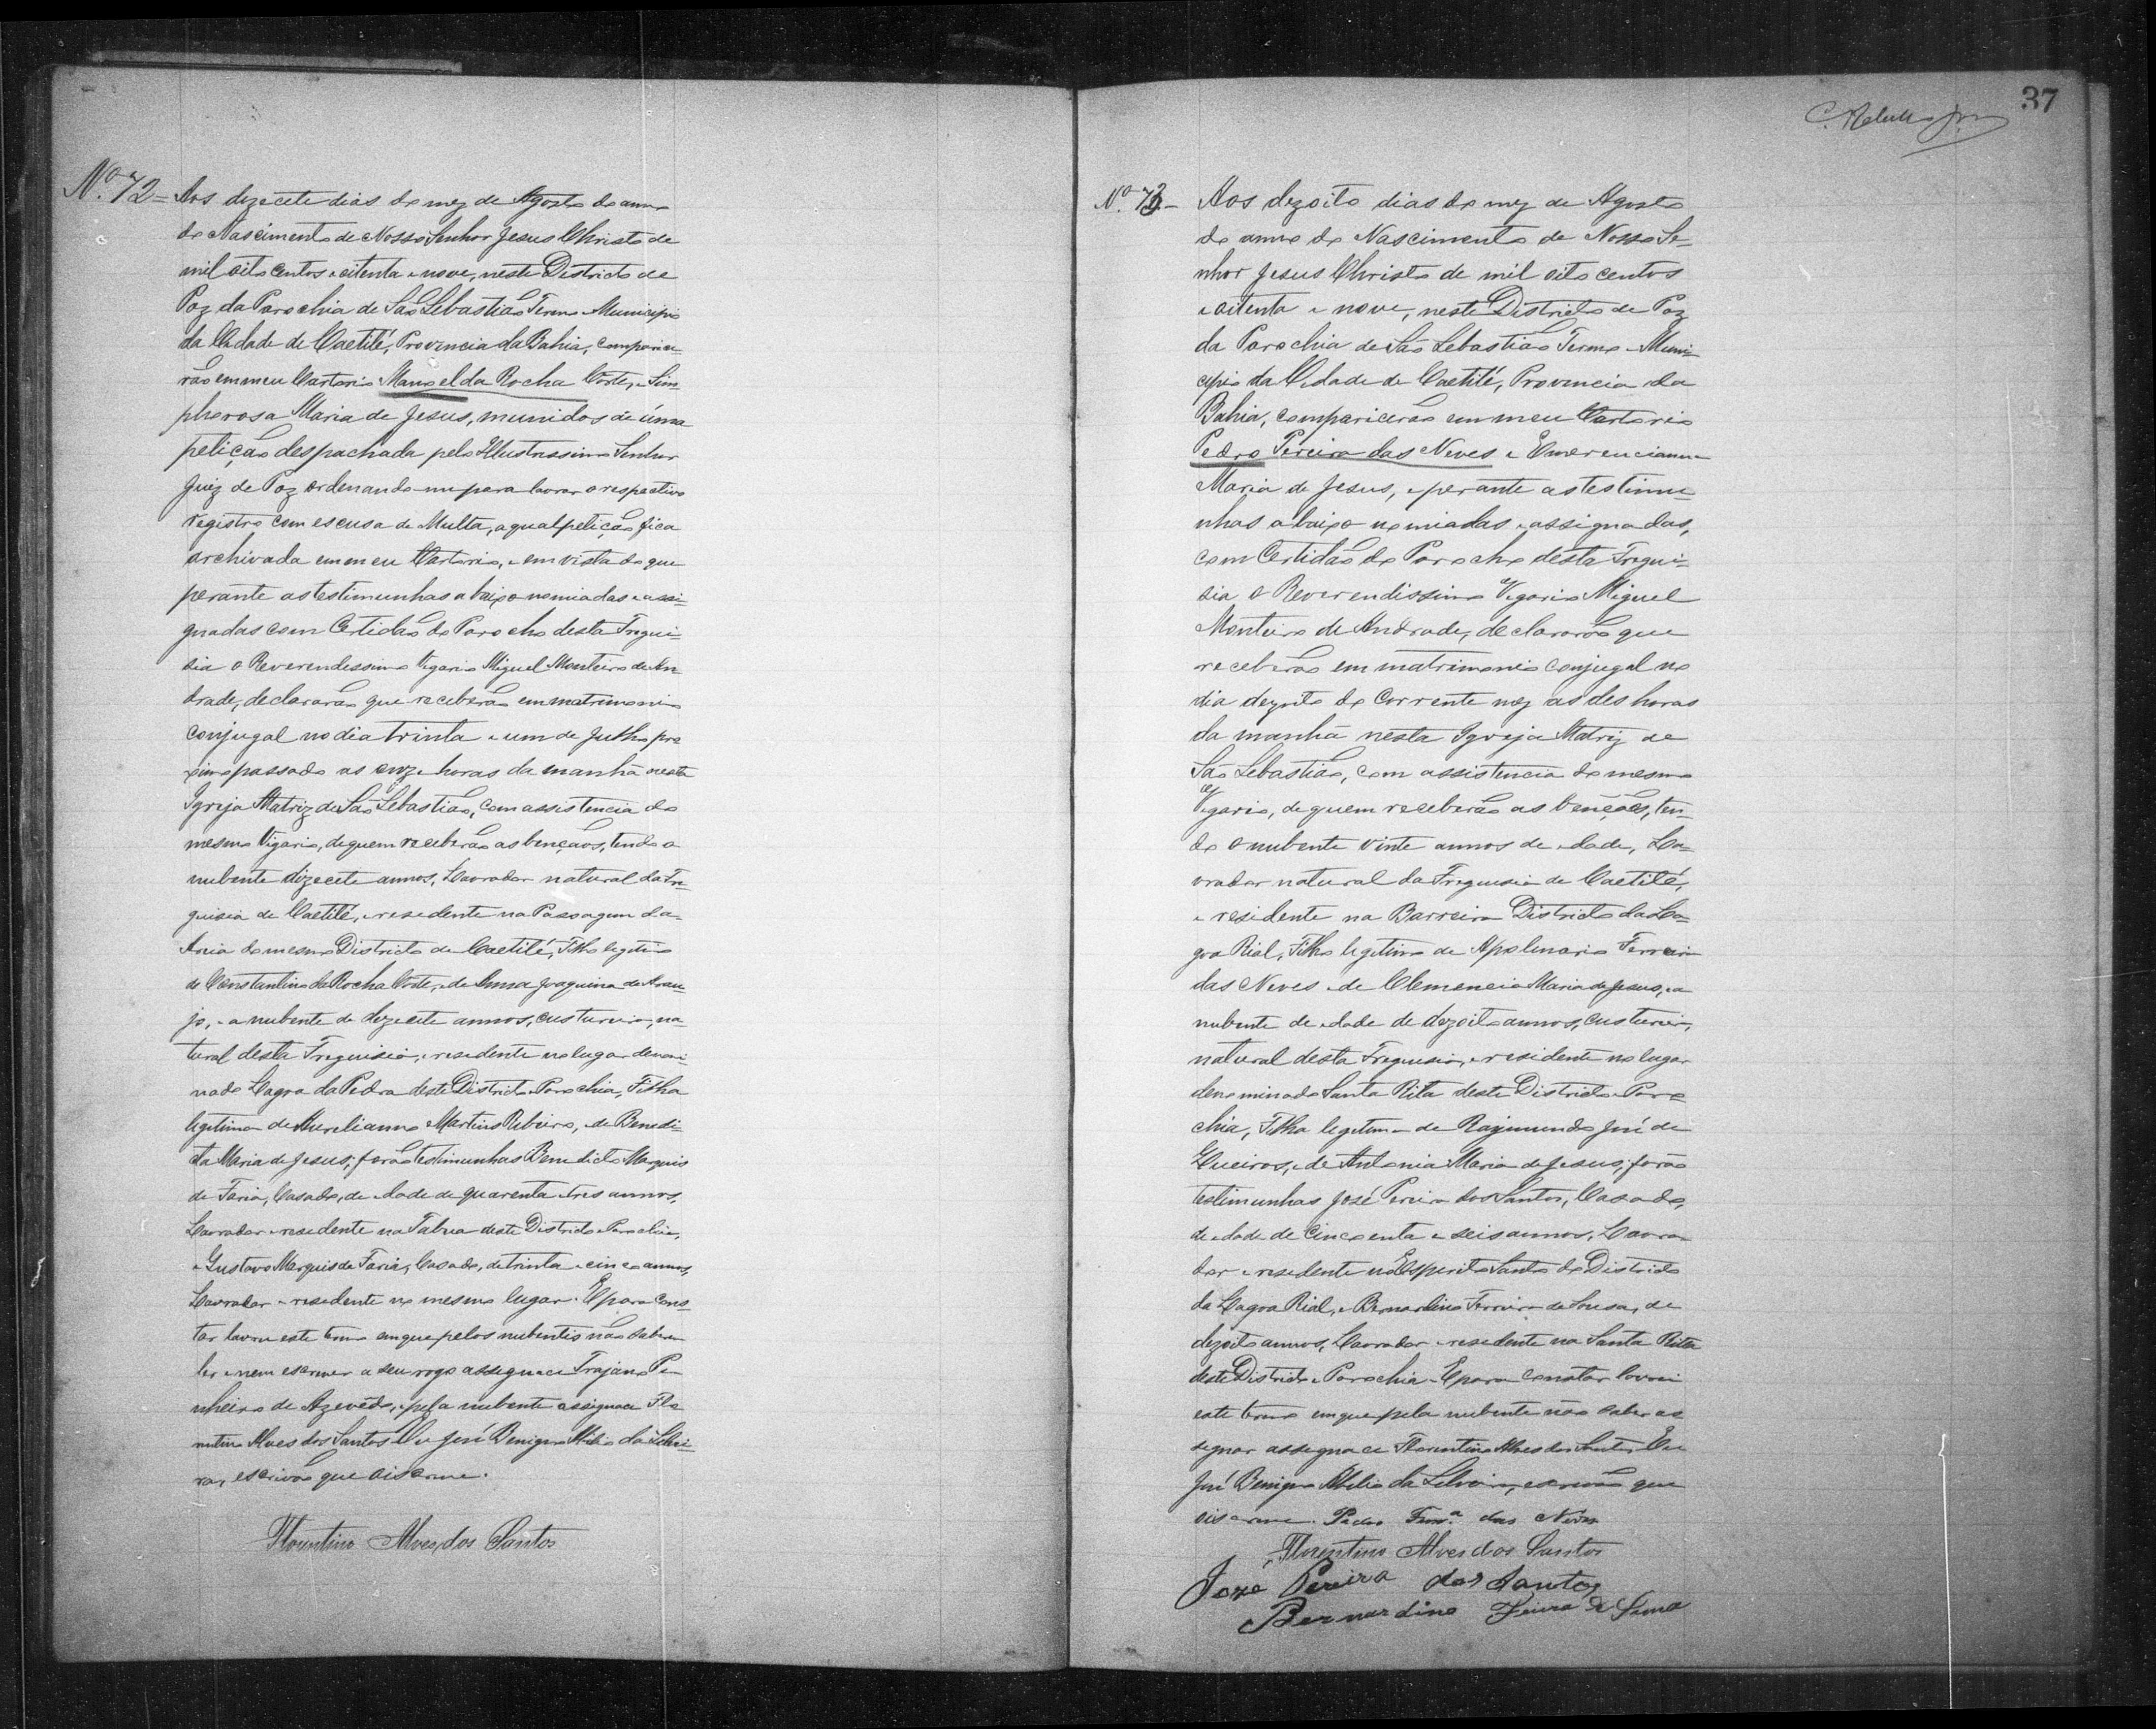 Nº 72 = Aos dezecete dias do mez de Agosto do anno
do Nascimento de Nosso Senhor Jesus Christo de
mil oito centos e oitenta e nove, neste Districto de
Paz da Parochia de São Sebastião Termo e Municipio
da Cidade de Caetité, Provincia da Bahia, comparice-
rão em meu Cartorio Manoel da Rocha Côrte, e Sim-
pherosa Maria de Jesus, munidos de úma
petição despachada pelo Illustrissimo Senhor
Juiz de Paz ordenando-me para lavrar o respectivo
registro com escusa de Multa, a qual petição fica
archivada em meu Cartorio, e em vista do que
perante as testimunhas abaixo nomiadas e assi-
gnadas com Certidão do Parocho desta Fregui-
sia o Reverendissimo Vigario Miguel Monteiro de An
drade, declararão que receberão em matrimonio
conjugal no dia trinta e um de Julho pro
ximo passado as onze horas da manhã nesta
Igreja Matriz de São Sebastião, com assistencia do
mesmo Vigario, de quem receberão as bençaos, tendo o
nubente dizecete annos, Lavrador natural da Fre-
guisia de Caetité, e residente na Passagem da
Areia do mesmo Districto de Caetité, Filho legitimo
de Constantino da Rocha Côrte, e de Anna Joaquina de Arau-
jo, e a nubente de dezecete annos, custureira, na-
tural desta Freguisia, e residente no lugar denomi
nado Lagoa da Pedra deste Districto e Parochia, Filha
legitima de Aurelianno Martins Ribeiro, e de Benedi-
cta Maria de Jesus; forão testimunhas Benedicto Marquis
de Faria, Casado, de idade de quarenta e tres annos,
Lavrador e residente na Tabua deste Districto e Parochia,
e Gustavo Marquis de Faria, Casado, de trinta e cinco annos,
Lavrador e residente no mesmo lugar. E para cons-
tar lavrei este termo em que pelos nubentis não saberem
ler e nem escrever a seu rogo assignace Trajano Pi
nheiro de Azevêdo, e pela nubente assignace Flo
rentino Alves dos Santos Eu José Benigno Abilio da Silvei-
ra, escrivão que oiscreve.
Florentino Alves dos Santos
37
Nº 73 - Aos dezoito dias do mez de Agosto
do anno do Nascimento de Nosso Se-
nhor Jesus Christo de mil oito centos
e oitenta e nove, neste Districto de Paz
da Parochia de São Sebastião Termo e Muni-
cipio da Cidade de Caetité, Provincia da
Bahia, comparicerão em meu Cartorio
Pedro Pereira das Neves e Emerencianna
Maria de Jesus, e perante as testimu-
nhas abaixo nomiadas e assignadas,
com Certidão do Parocho desta Fregui-
sia o Reverendissimo Vigario Miguel
Monteiro de Andrade, declararão que
receberão em matrimonio conjugal no
dia dezoito do corrente mez as des horas
da manhã nesta Igreja Matriz de
São Sebastião, com assistencia do mesmo
Vigario, de quem receberão as benções, ten-
do o nubente vinte annos de idade, La-
vrador natural da Freguisia de Caetité,
e residente na Barreira Districto da La-
goa Rial, Filho legitimo de Apolinario Ferreira
das Neves e de Clemencia Maria de Jesus, e a
nubente de idade de dezoito annos, custureira,
natural desta Freguisia, e residente no lugar
denominado Santa Rita deste Districto e Paro-
chia, Filha legitima de Raymundo José de
Queiros, e de Antonia Maria de Jesus; forão
testimunhas José Pereira dos Santos, Casado,
de idade de cincoenta e seis annos, Lavra-
dor e residente no Esperito Santo do Districto
da Lagoa Rial, e Bernardino Ferreira de Sousa, de
dezoito annos, Lavrador e residente na Santa Rita
deste Districto e Parochia. E para constar lavrei
este termo em que pela nubente não saber as-
signar assignace Florentino Alves dos Santos Eu
José Benigno Abilio da Silveira, escrivão que
oiscreve. Pedro Ferrª das Neves
Florentino Alves dos Santos
José Pereira dos Santos
Bernardino